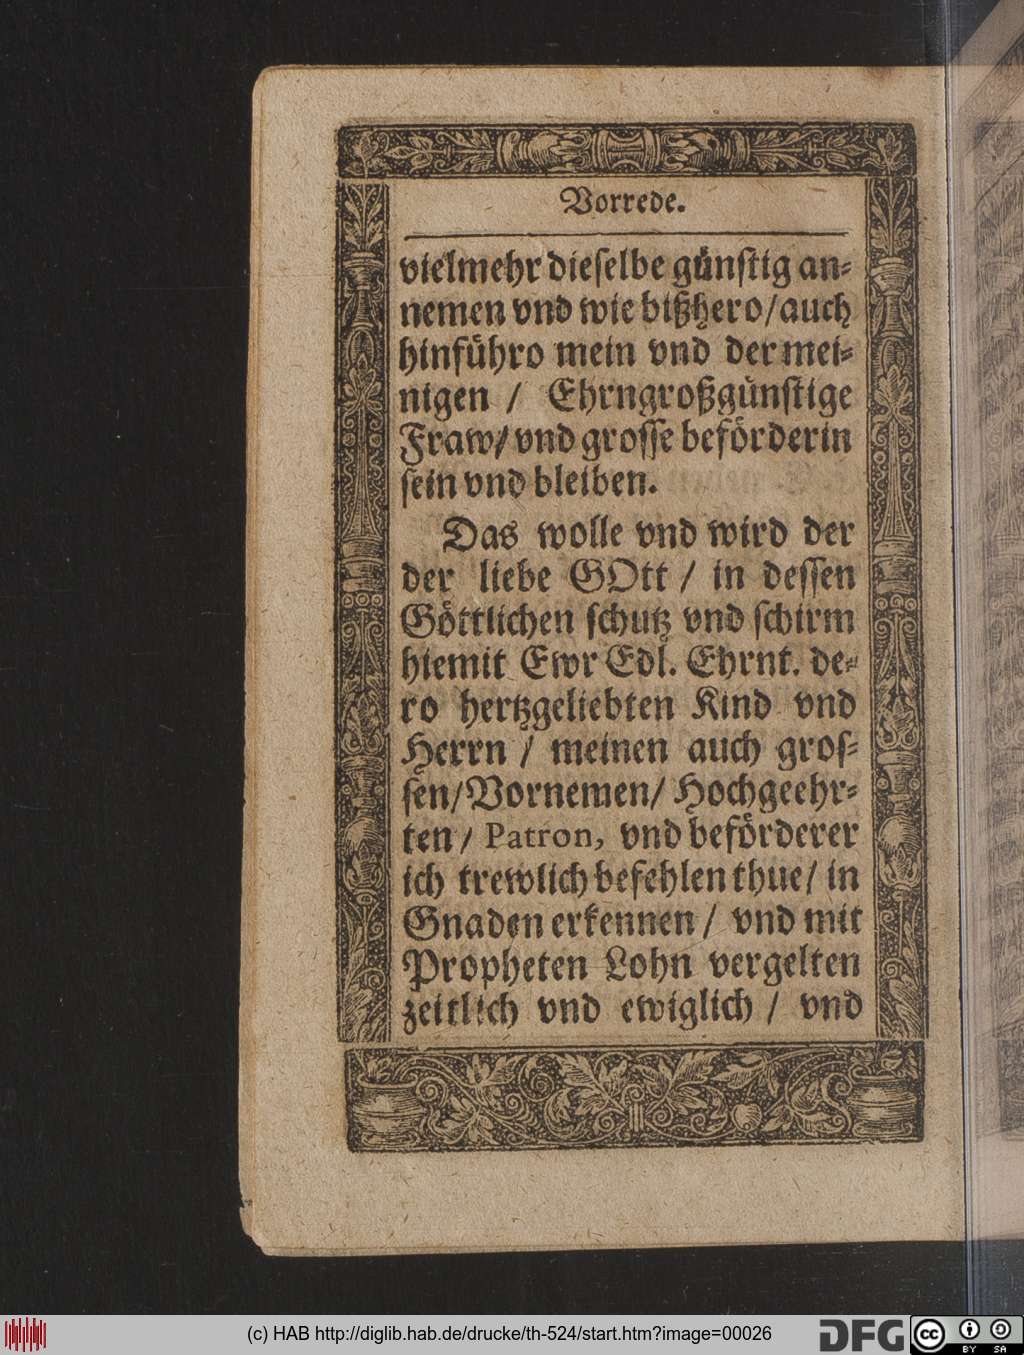 Vorrede.
vielmehr dieſelbe günſtig an-
nemen vnd wie bißhero/auch
hinführo mein vnd der mei-
nigen / Ehrngroßgünſtige
Fraw/ vnd groſſe beförderin
ſein vnd bleiben.
Das wolle vnd wird der
der liebe GOtt / in deſſen
Göttlichen ſchutz vnd ſchirm
hiemit Ewr Edl. Ehrnt. de-
ro hertzgeliebten Kind vnd
Herrn / meinen auch groſ-
ſen/Vornemen/ Hochgeehr-
ten/ Patron, vnd beförderer
ich trewlich befehlen thue/ in
Gnaden erkennen / vnd mit
Propheten Lohn vergelten
zeitlich vnd ewiglich / vnd
(c) HAB http://diglib.hab.de/drucke/th-524/start.htm?image=00026
DFG
cc
BY SA